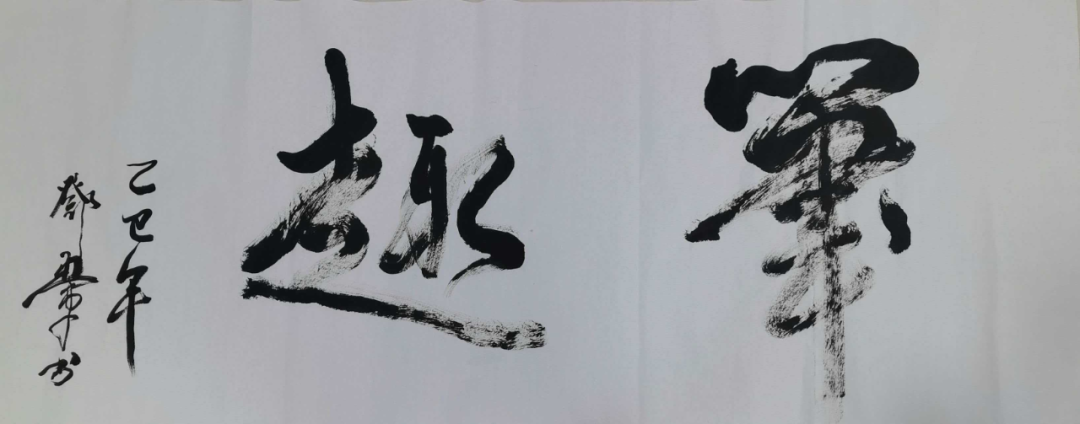 筆趣
乙巳年
鄧 书